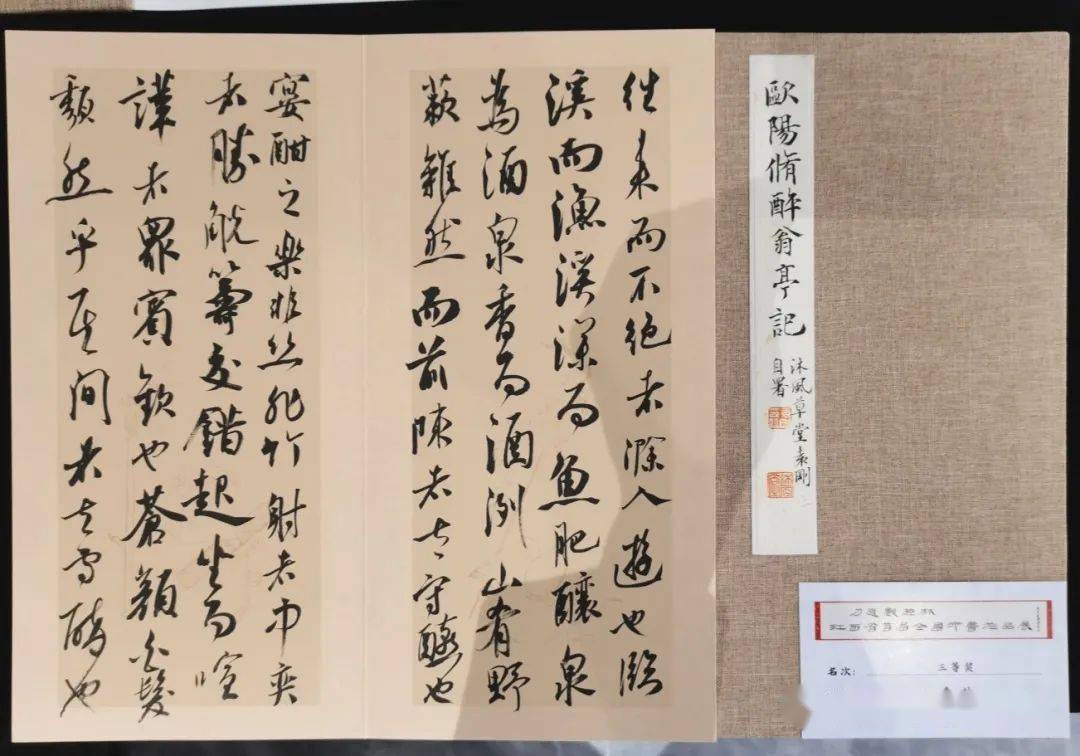 歐陽脩醉翁亭記
沐風草堂袁剛
自署
往来而不絶者滁人遊也臨
溪而漁溪深而魚肥釀泉
為酒泉香而酒洌山肴野
蔌雜然而前陳者太守醼也
宴酣之樂非絲非竹射者中奕
者勝觥籌交錯起坐而喧
譁者眾賓歡也蒼顔白髮
頹然乎其間者太守醉也
名次: 三等奖